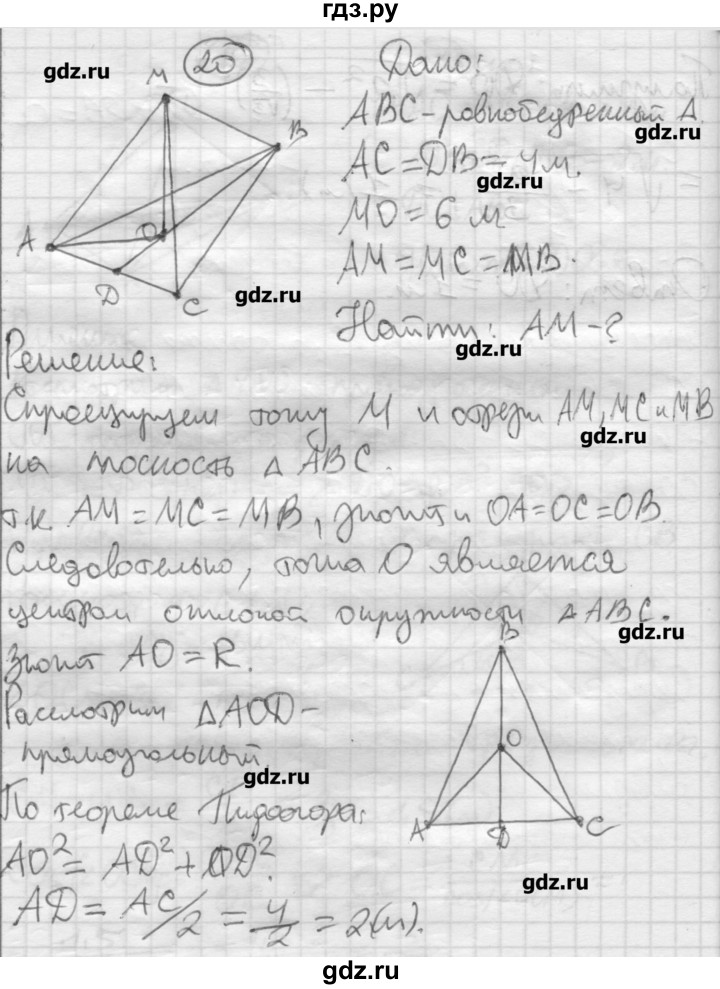 гдз.ру
20
gdz.ru
M
B
A
O
D
C
gdz.ru
Дано:
ABC - равнобедренный Δ.
gdz.ru
AC = DB = 4 м.
gdz.ru
MO = 6 м
AM = MC = MB.
Найти: AM - ?
gdz.ru
Решение:
Спроецируем точку M и отрезки AM, MC и MB
gdz.ru
на плоскость Δ ABC.
т.к. AM = MC = MB, значит и OA = OC = OB.
Следовательно, точка O является
центром описанной окружности Δ ABC.
gdz.ru
Значит AO = R.
Рассмотрим Δ AOD -
прямоугольный.
gdz.ru
По теореме Пифагора:
AO² = AD² + OD².
AD = AC/2 = 4/2 = 2(м).
B
O
A
D
C
gdz.ru
gdz.ru